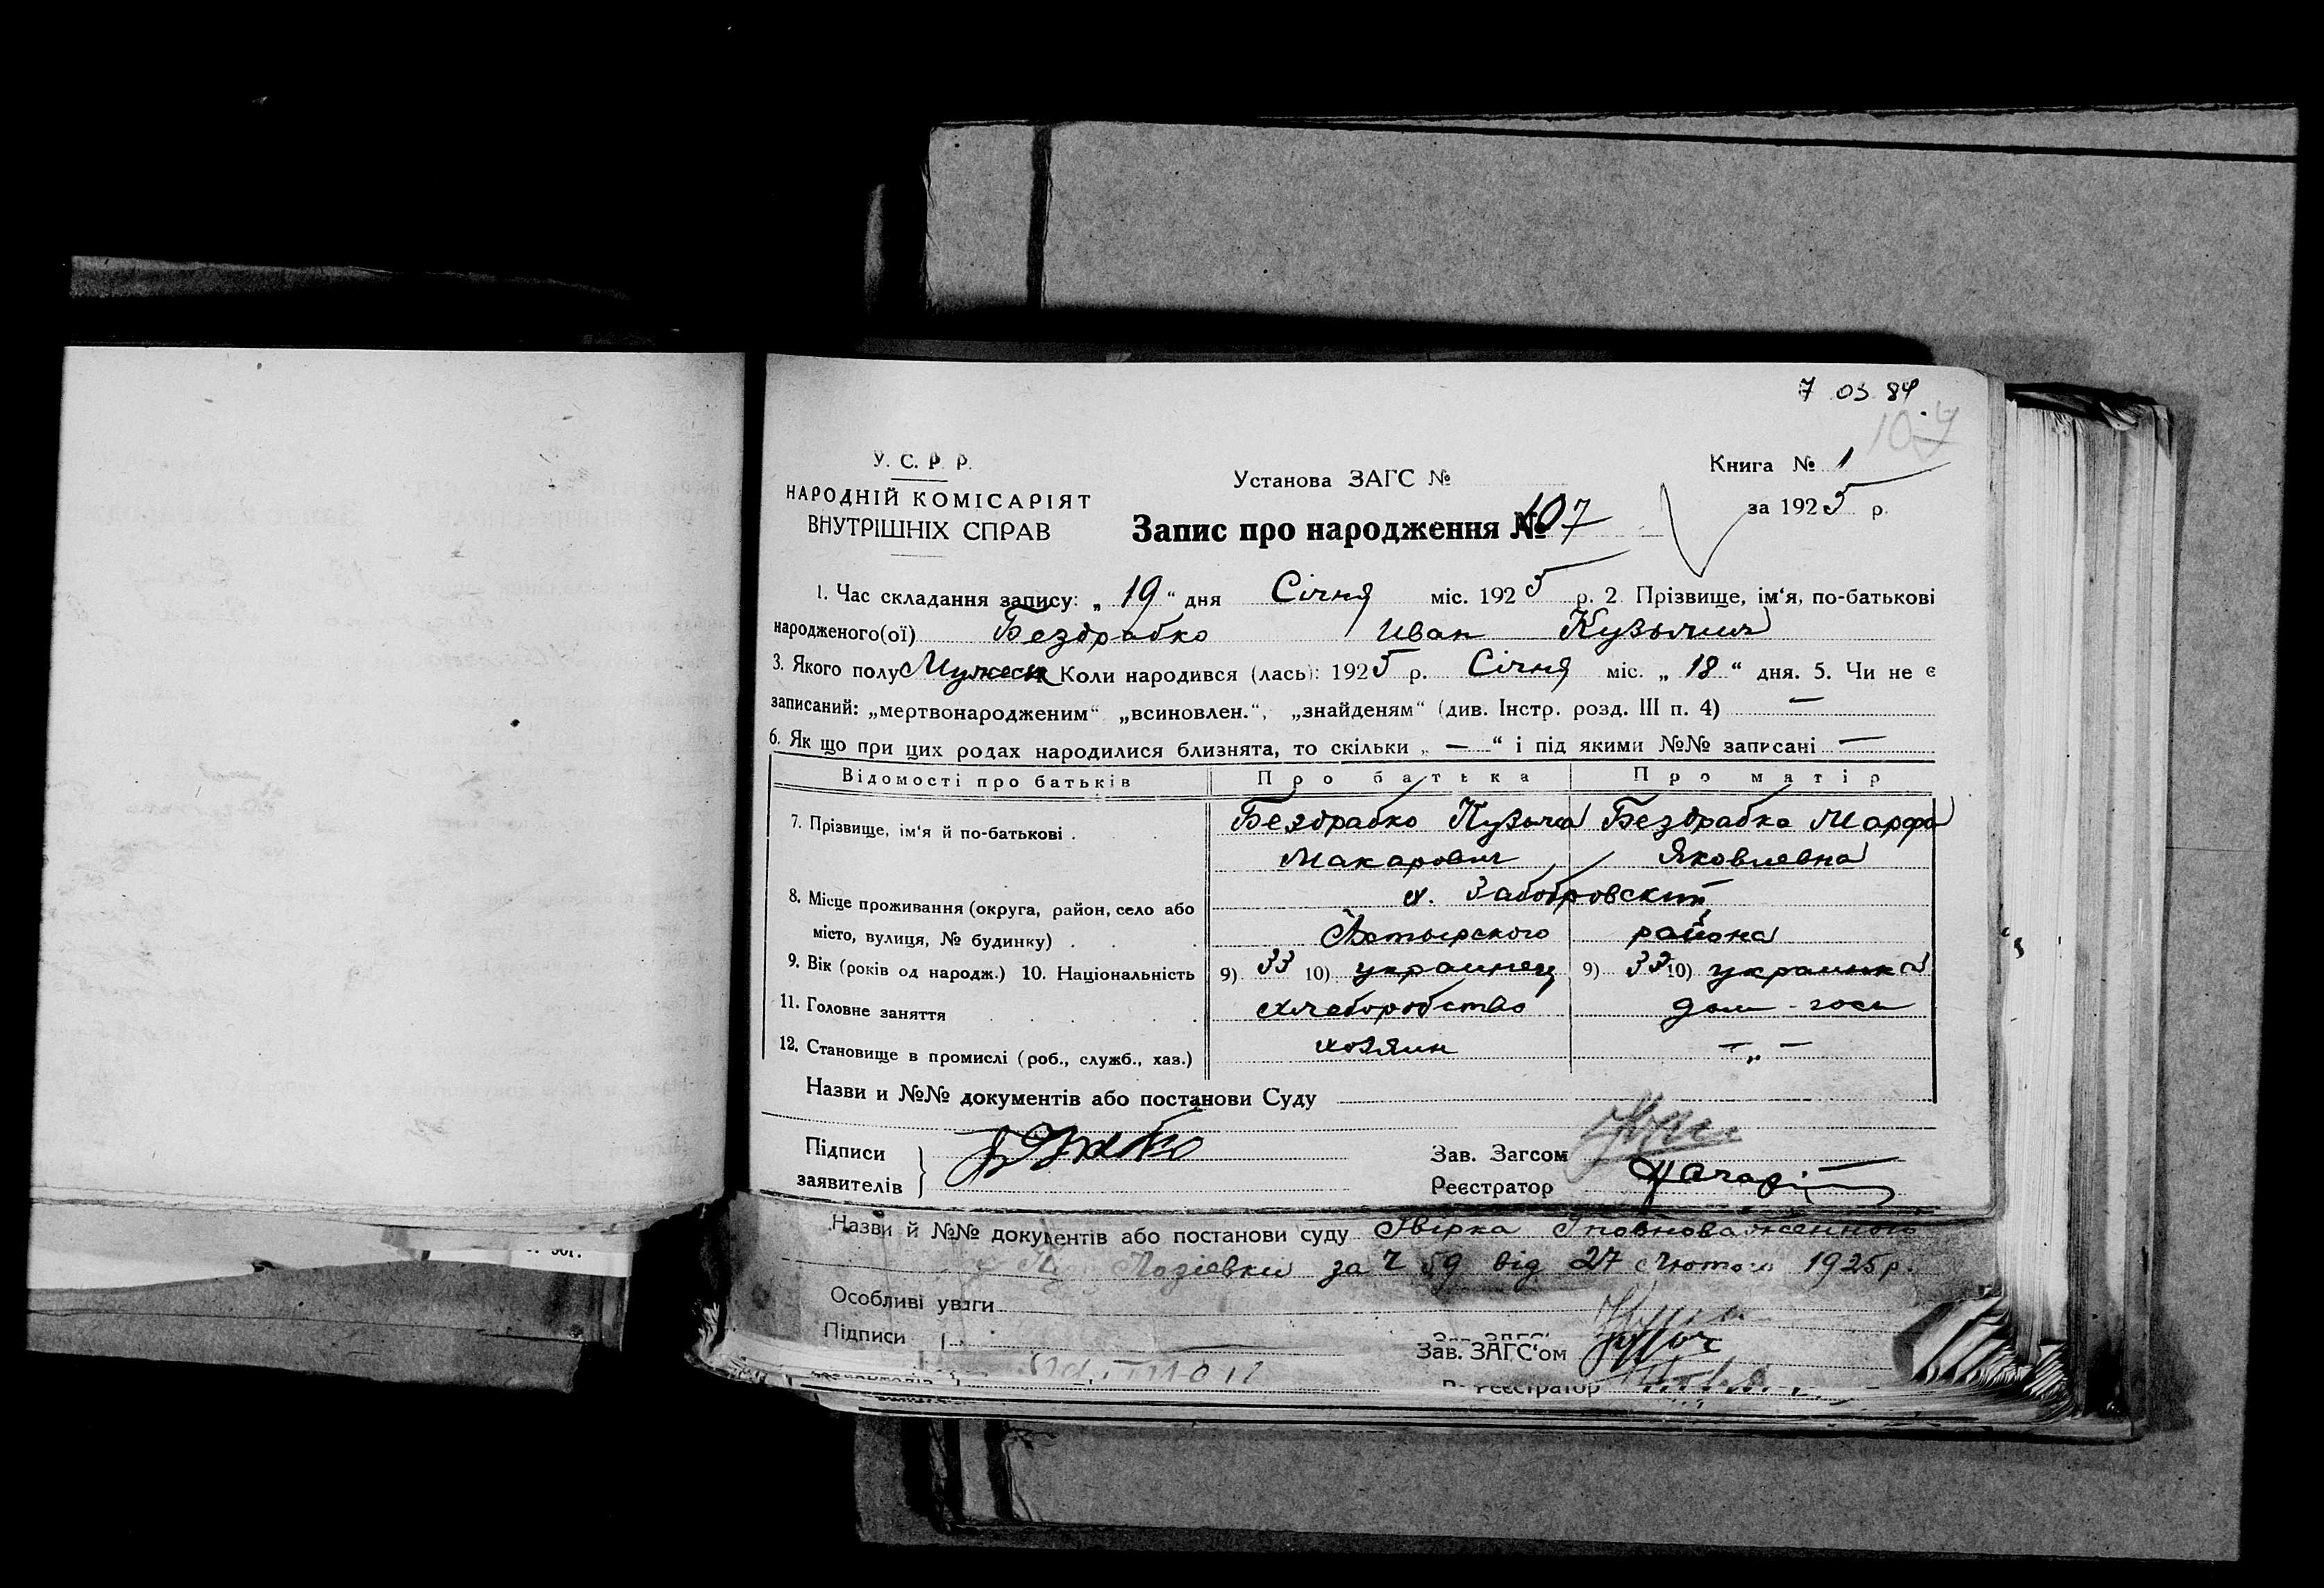 7 03 84
107
У. С. Р. Р.
НАРОДНІЙ КОМІСАРІЯТ
ВНУТРІШНІХ СПРАВ
Установа ЗАГС №
Книга № 1
за 1925 р.
Запис про народження № 107
1. Час складання запису: „ 19 “ дня Січня міс. 1925 р. 2 Прізвище, ім‘я, по-батькові
народженого(ої) Бездрабко Иван Кузьмич
3. Якого полу Мужеск Коли народився (лась): 1925 р. Січня міс. „ 18 “ дня. 5. Чи не є
записаний: „мертвонародженим“ „всиновлен.“, „знайденям“ (див. Інстр. розд. III п. 4) —
6. Як що при цих родах народилися близнята, то скільки „ — “ і під якими №№ записані —
Відомості про батьків Про батька Про матір
7. Прізвище, ім‘я й по-батькові . Бездрабко Кузьма Бездрабко Марфа
Макарович Яковлевна
8. Місце проживання (округа, район, село або х.
місто, вулиця, № будинку) . . Ахтырского района
9. Вік (років од народж.) 10. Національність 9) 33 10) украинец 9) 33 10) украинка
11. Головне заняття хлеборобство дом - хозя
12. Становище в промислі (роб., служб., хаз.) хозяин — „ —
Назви и №№ документів або постанови Суду
Підписи
заявителів
Зав. Загсом
Реєстратор
Назви й №№ документів або постанови суду Уповноваженного
за Ч 59 від 27 Лютого 1925 р.
Особливі уваги
Підписи
Зав. ЗАГС‘ом
Реєстратор